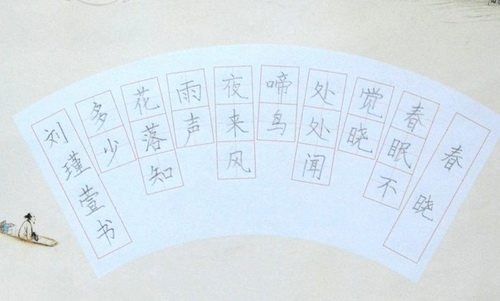 春晓
春眠不
觉晓
处处闻
啼鸟
夜来风
雨声
花落知
多少
刘瑾萱书